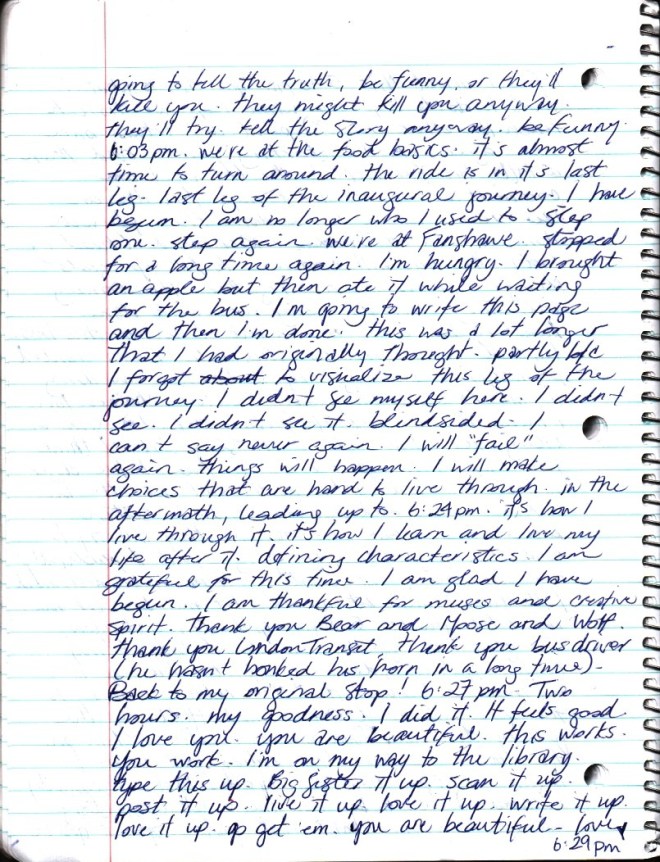 going to tell the truth, be funny, or they'll
kill you. they might kill you anyway.
they'll try. tell the story anyway. be funny.
6:03pm. we're at the food basics. it's almost
time to turn around. the ride is in it's last
leg. last leg of the inaugural journey. I have
begun. I am no longer who I used to. step
one. step again. we're at Fanshawe. stopped
for a long time again. I'm hungry. I brought
an apple but then ate it while waiting
for the bus. I'm going to write this page
and then I'm done. this was a lot longer
that I had originally thought. partly b/c
I forgot about to visualize this leg of the
journey. I didn't see myself here. I didn't
see. I didn't see it. blindsided. I
can't say never again. I will "fail"
again. things will happen. I will make
choices that are hard to live through. in the
aftermath, leading up to. 6:24pm. it's how I
live through it. it's how I learn and live my
life after it. defining characteristics. I am
grateful for this time. I am glad I have
begun. I am thankful for muses and creative
spirit. thank you Bear and Moose and Wolf.
thank you London Transit. thank you bus driver
(he hasn't honked his horn in a long time).
Back to my original stop! 6:27pm. Two
hours. my goodness. I did it. It feels good.
I love you. you are beautiful. this works.
you work. I'm on my way to the library.
type this up. Big Sister it up. scan it up.
post it up. live it up. love it up. write it up.
love it up. go get 'em. you are beautiful - love,
6:29pm